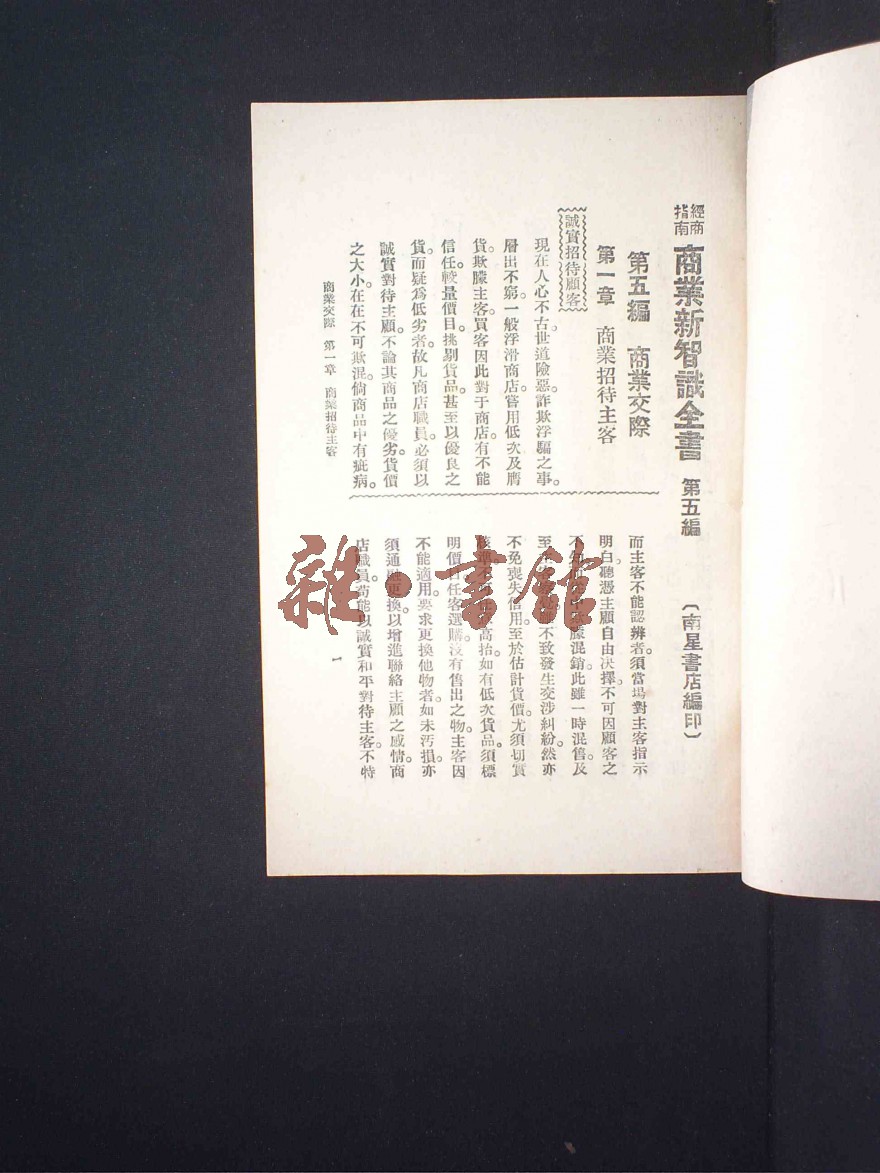 經商指南 商業新智識全書 第五編 （南星書店編印）
第五編 商業交際
第一章 商業招待主客
誠實招待顧客
現在人心不古。世道險惡。詐欺浮騙之事。
層出不窮。一般浮滑商店。嘗用低次及膺
貨。欺朦主客。買客因此對于商店。有不能
信任。較量價目。挑剔貨品。甚至以優良之
貨。而疑爲低劣者。故凡商店職員。必須以
誠實對待主顧。不論其商品之優劣。貨價
之大小。在在不可欺混。倘商品中有疵病。
而主客不能認辨者。須當場對主客指示
明白。聽憑主顧自由決擇。不可因顧客之
不知 朦混銷。此雖一時混售。及
至 不致發生交涉糾紛。然亦
不免喪失信用。至於估計貨價。尤須切實
高抬。如有低次貨品。須標
明價目。任客選購。沒有售出之物。主客因
不能適用。要求更換他物者。如未污損。亦
須通融更換。以增進聯絡主顧之感情。商
店職員。苟能以誠實和平對待主客。不特
商業交際 第一章 商業招待主客
一
雜·書館